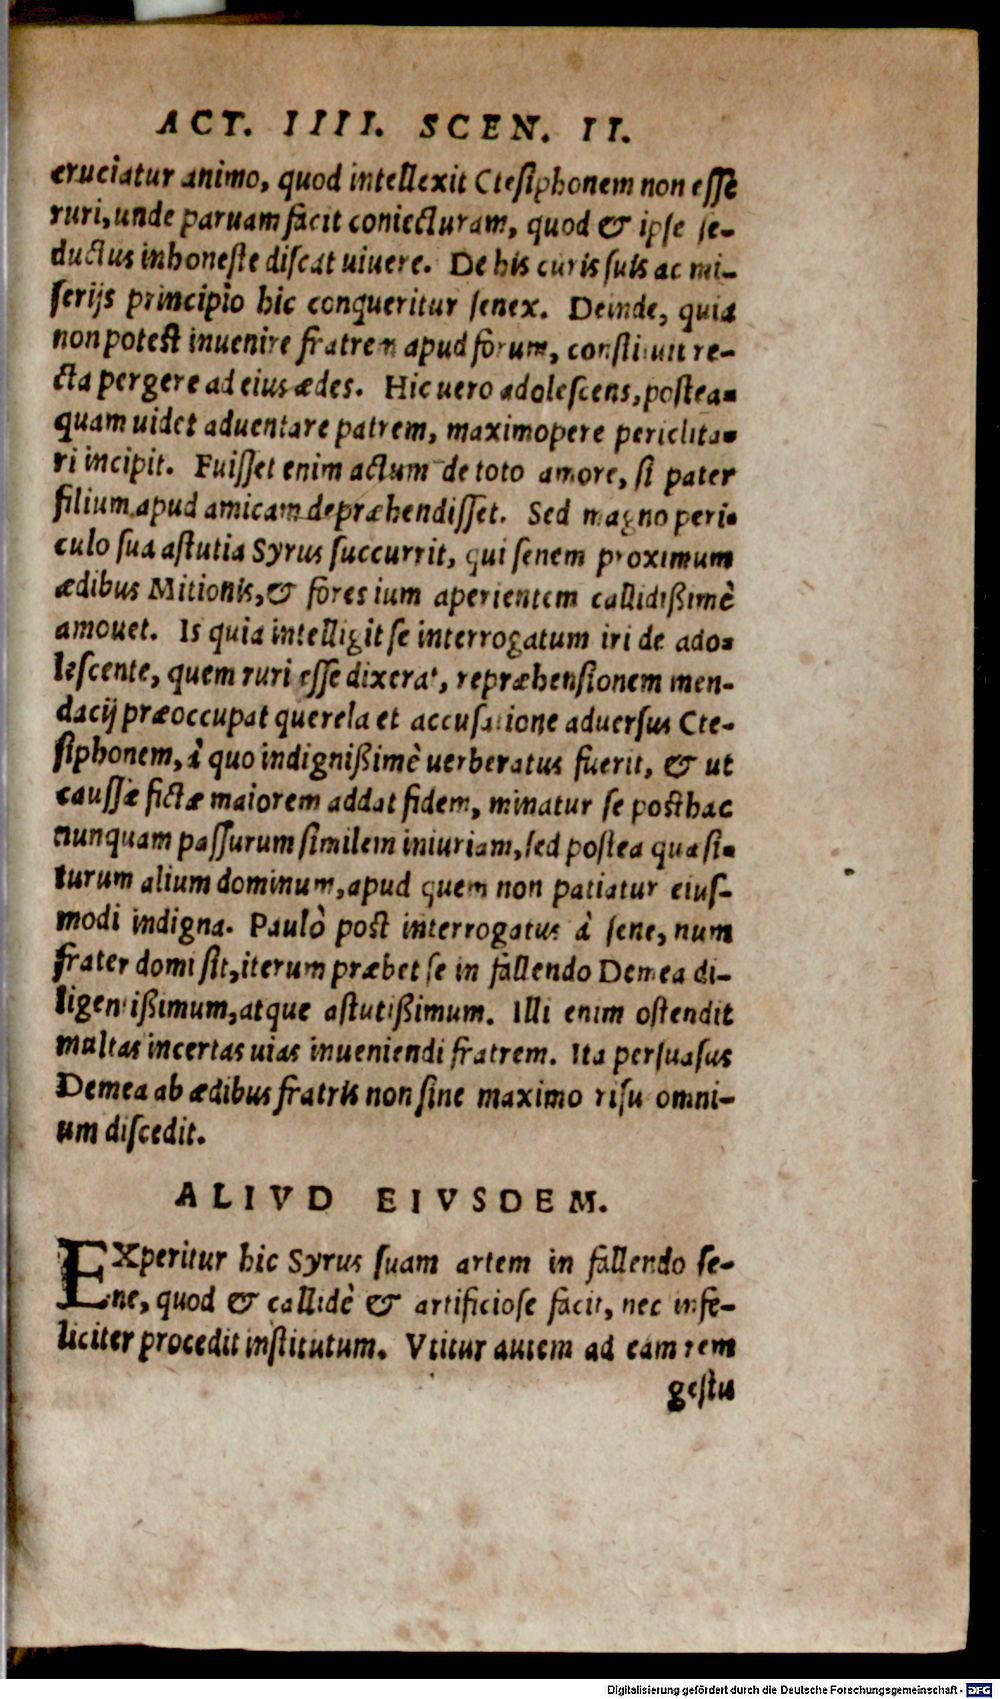 ACT. IIII. SCEN. II.
cruciatur animo, quod intellexit Ctesiphonem non esse
ruri, unde paruam facit coniecturam, quod & ipse se-
ductus inhoneste discat uiuere. De his curis suis ac mi-
serijs principio hic conqueritur senex. Deinde, quia
non potest inuenire fratrem apud forum, constituit re-
cta pergere ad eius ædes. Hic uero adolescens, postea-
quam uidet aduentare patrem, maximopere periclita-
ri incipit. Fuisset enim actum de toto amore, si pater
filium apud amicam depræhendisset. Sed magno peri-
culo sua astutia Syrus succurrit, qui senem proximum
ædibus Mitionis, & fores ium aperientem callidißimè
amouet. Is quia intelligit se interrogatum iri de ado-
lescente, quem ruri esse dixerat, repræhensionem men-
dacij præoccupat querela et accusatione aduersus Cte-
siphonem, à quo indignißimè uerberatus fuerit, & ut
caussæ fictæ maiorem addat fidem, minatur se posthac
nunquam passurum similem iniuriam, sed postea quæsi-
turum alium dominum, apud quem non patiatur eius-
modi indigna. Paulò post interrogatus à sene, num
frater domi sit, iterum præbet se in fallendo Demea di-
ligentißimum, atque astutißimum. Illi enim ostendit
multas incertas uias inueniendi fratrem. Ita persuasus
Demea ab ædibus fratris non sine maximo risu omni-
um discedit.
ALIVD EIVSDEM.
EXperitur hic Syrus suam artem in fallendo se-
ne, quod & callidè & artificiose facit, nec infe-
liciter procedit institutum. Vtitur autem ad eam rem
gestu
Digitalisierung gefördert durch die Deutsche Forschungsgemeinschaft - DFG